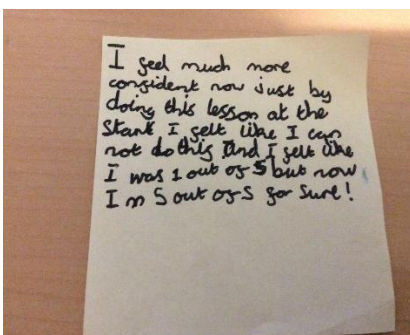 I feel much more
confident now just by
doing this lesson at the
Start I felt like I can
not do this And I felt like
I was 1 out of 5 but now
I m 5 out of 5 for sure!